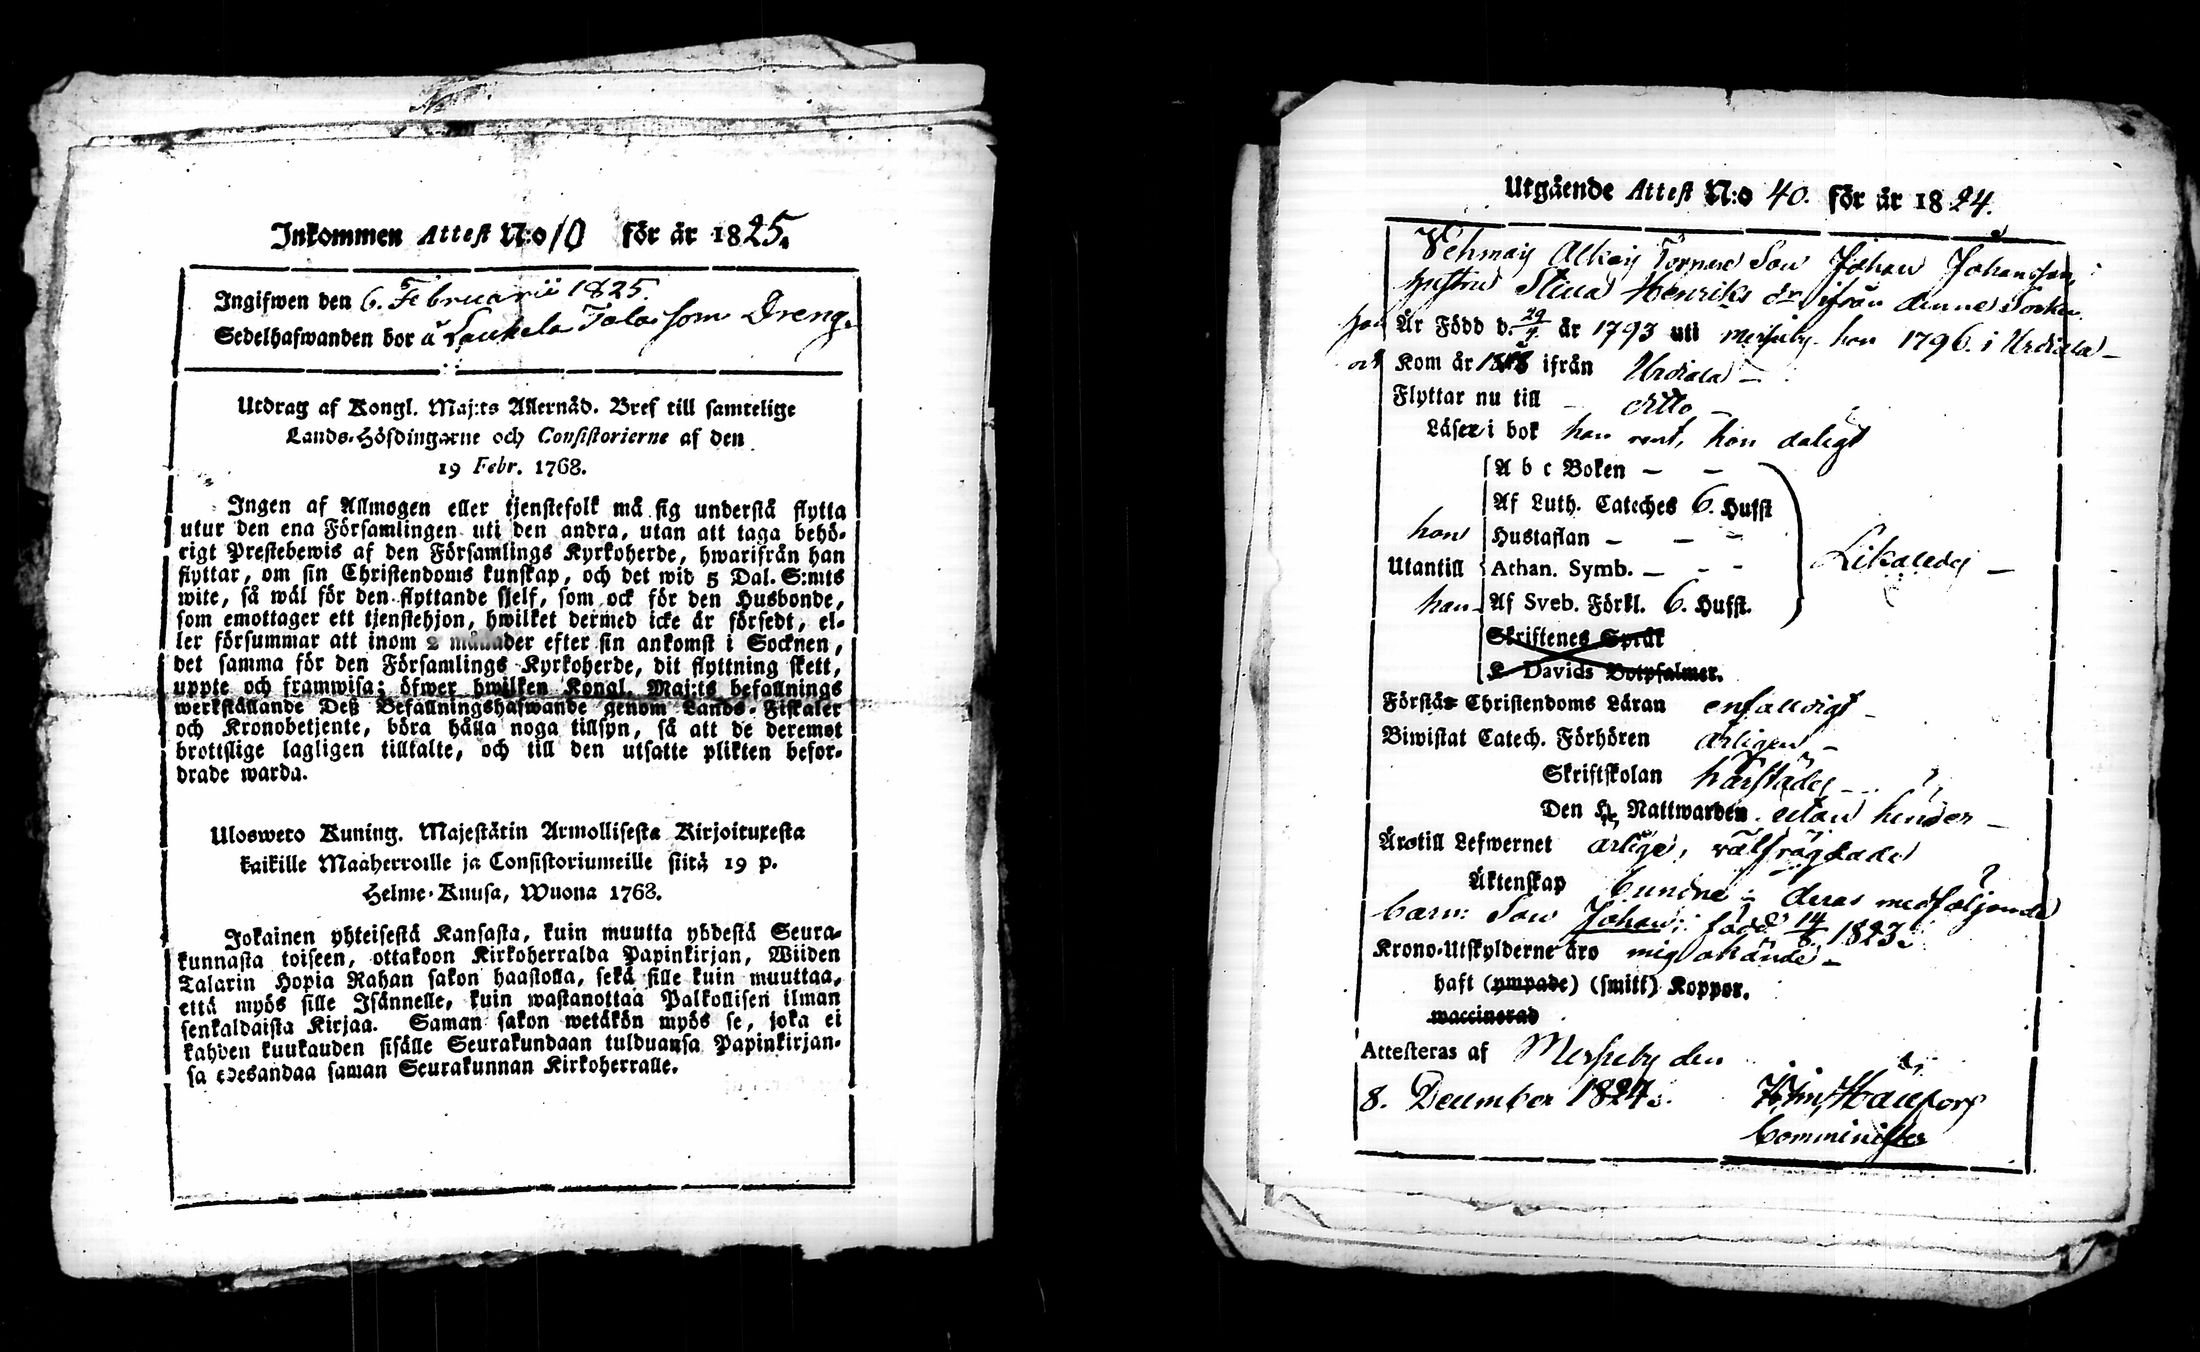 Inkommen Attest N:o 10 för år 1825.
Ingifwen den 6. Februarii 1825.
Sedelhafwanden bor å Laukela Tala som Dreng.
Utdrag af Kongl. Maj:ts Allernåd. Bref till samtelige
Lands-Höfdingarne och Consistorierne af den
19 Febr. 1768.
Ingen af Allmogen eller tjenstefolk må sig understå flytta
utur den ena Församlingen uti den andra, utan att taga behö-
rigt Prestebewis af den Församlings Kyrkoherde, hwarifrån han
flyttar, om sin Christendoms kunskap, och det wid 5 Dal. S:mts
wite, så wäl för den flyttande sjelf, som ock för den Husbonde,
som emottager ett tjenstehjon, hwilket dermed icke är försedt, el-
ler försummar att inom 2 månader efter sin ankomst i Socknen,
det samma för den Församlings Kyrkoherde, dit flyttning skett,
uppte och framwisa; öfwer hwilken Kongl. Maj:ts befallnings
werkställande Deß Befallningshafwande genom Lands-Fiskaler
och Kronobetjente, böra hålla noga tillsyn, så att de deremot
brottslige lagligen tilltalte, och till den utsatte plikten befor-
drade warda.
Ulosweto Kuning. Majestätin Armollisesta Kirjoituxesta
kaikille Maaherroille ja Consistoriumeille siitä 19 p.
Helme-Kuusa, Wuona 1768.
Jokainen yhteisestä Kansasta, kuin muutta yhdestä Seura-
kunnasta toiseen, ottakoon Kirkoherralda Papinkirjan, Wiiden
Talarin Hopia Rahan sakon haastolla, sekä sille kuin muuttaa,
että myös sille Isännelle, kuin wastanottaa Palkollisen ilman
senkaldaista Kirjaa. Saman sakon wetäkön myös se, joka ei
kahden kuukauden sisälle Seurakundaan tulduansa Papinkirjan-
sa edesandaa saman Seurakunnan Kirkoherralle.
Utgående Attest N:o 40. för år 1824.
Torpare Son Johan Johansson,
hustru Stina Henriks dr ifrån denne Socken.
han Är Född d. 29 år 1793 uti hon 1796. i Urdiala
Kom år ifrån Urdiala
Flyttar nu till ditto
Läser i bok han rent, hon daligt
A b c Boken
Af Luth. Cateches 6. Hufst
hon Hustaflan
Utantill Athan. Symb. Likaledes
han Af Sveb. Förkl. 6. Hufst.
Skriftenes Språk
K. Davids Botpsalmer.
Förstår Christendoms Läran enfalldigt
Biwistat Catech. Förhören årligen
Skriftskolan härstädes
Den H. Nattwarden utan hinder
Äro till Lefwernet ärlige, välfrägdade
Äktenskap bundne deras medföljande
barn: Son Johan: född 14/8 1823.
Krono-Utskylderne äro mig okände
haft (ympade) (smitt) Koppor.
waccinerad
Attesteras af den
8. December 1824.
Comminister